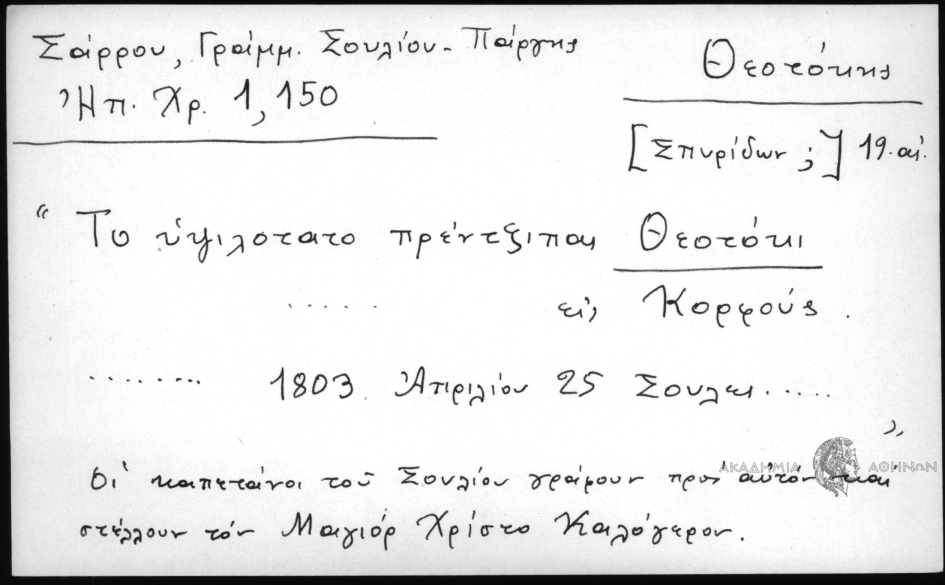 Σάρρου, Γράμμ. Σουλίου - Πάργης
Ἠπ. Χρ. 1, 150
Θεοτόκης
[Σπυρίδων ;] 19. αἰ.
“ Το ὑψιλοτατο πρέντζιπαι Θεοτόκι
..... εἰς Κορφούς .
........ 1803 Ἀπριλίου 25 Σουλει .....
”
Οἱ καπετάνοι τοῦ Σουλίου γράφουν πρὸς αὐτόν καί
στέλλουν τόν Μαγιόρ Χρίστο Καλόγερον.
ΑΚΑΔΗΜΙΑ ΑΘΗΝΩΝ